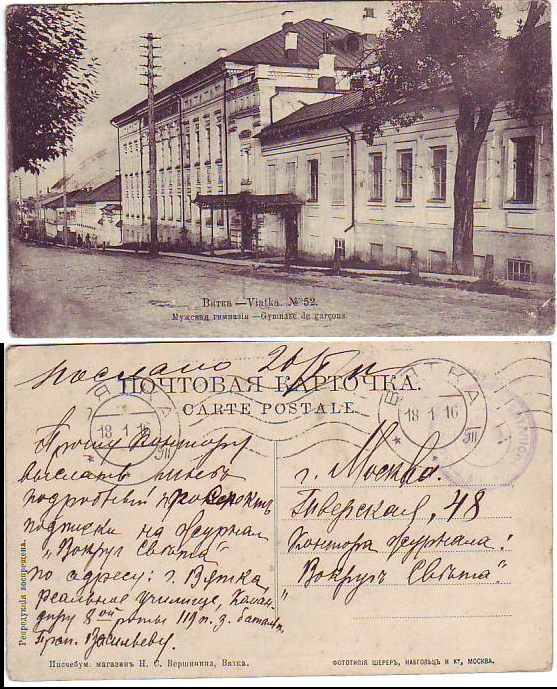 Вятка — Viatka. № 52.
Мужская гимназія — Gymnase de garçons
послано 20/I
ПОЧТОВАЯ КАРТОЧКА.
CARTE POSTALE
ВЯТКА
18 1 16
ВЯТКА
18 1 16
Прошу контору
выслать мнѣ
подробный проспектъ
подписки на журнал
"Вокруг Свѣта"
по адресу: г. Вятка,
реальное училище, Коман-
диру 8ой роты 119 п. з. баталь
Прап. Васильеву.
г. Москва.
Тверская, 48
Контора журнала:
"Вокругъ Свѣта".
Репродукція воспрещена.
Писчебум. магазин Н. С. Вершинина, Вятка.
ФОТОТИПІЯ ШЕРЕРЪ, НАБГОЛЬЦЪ И Кº, МОСКВА.